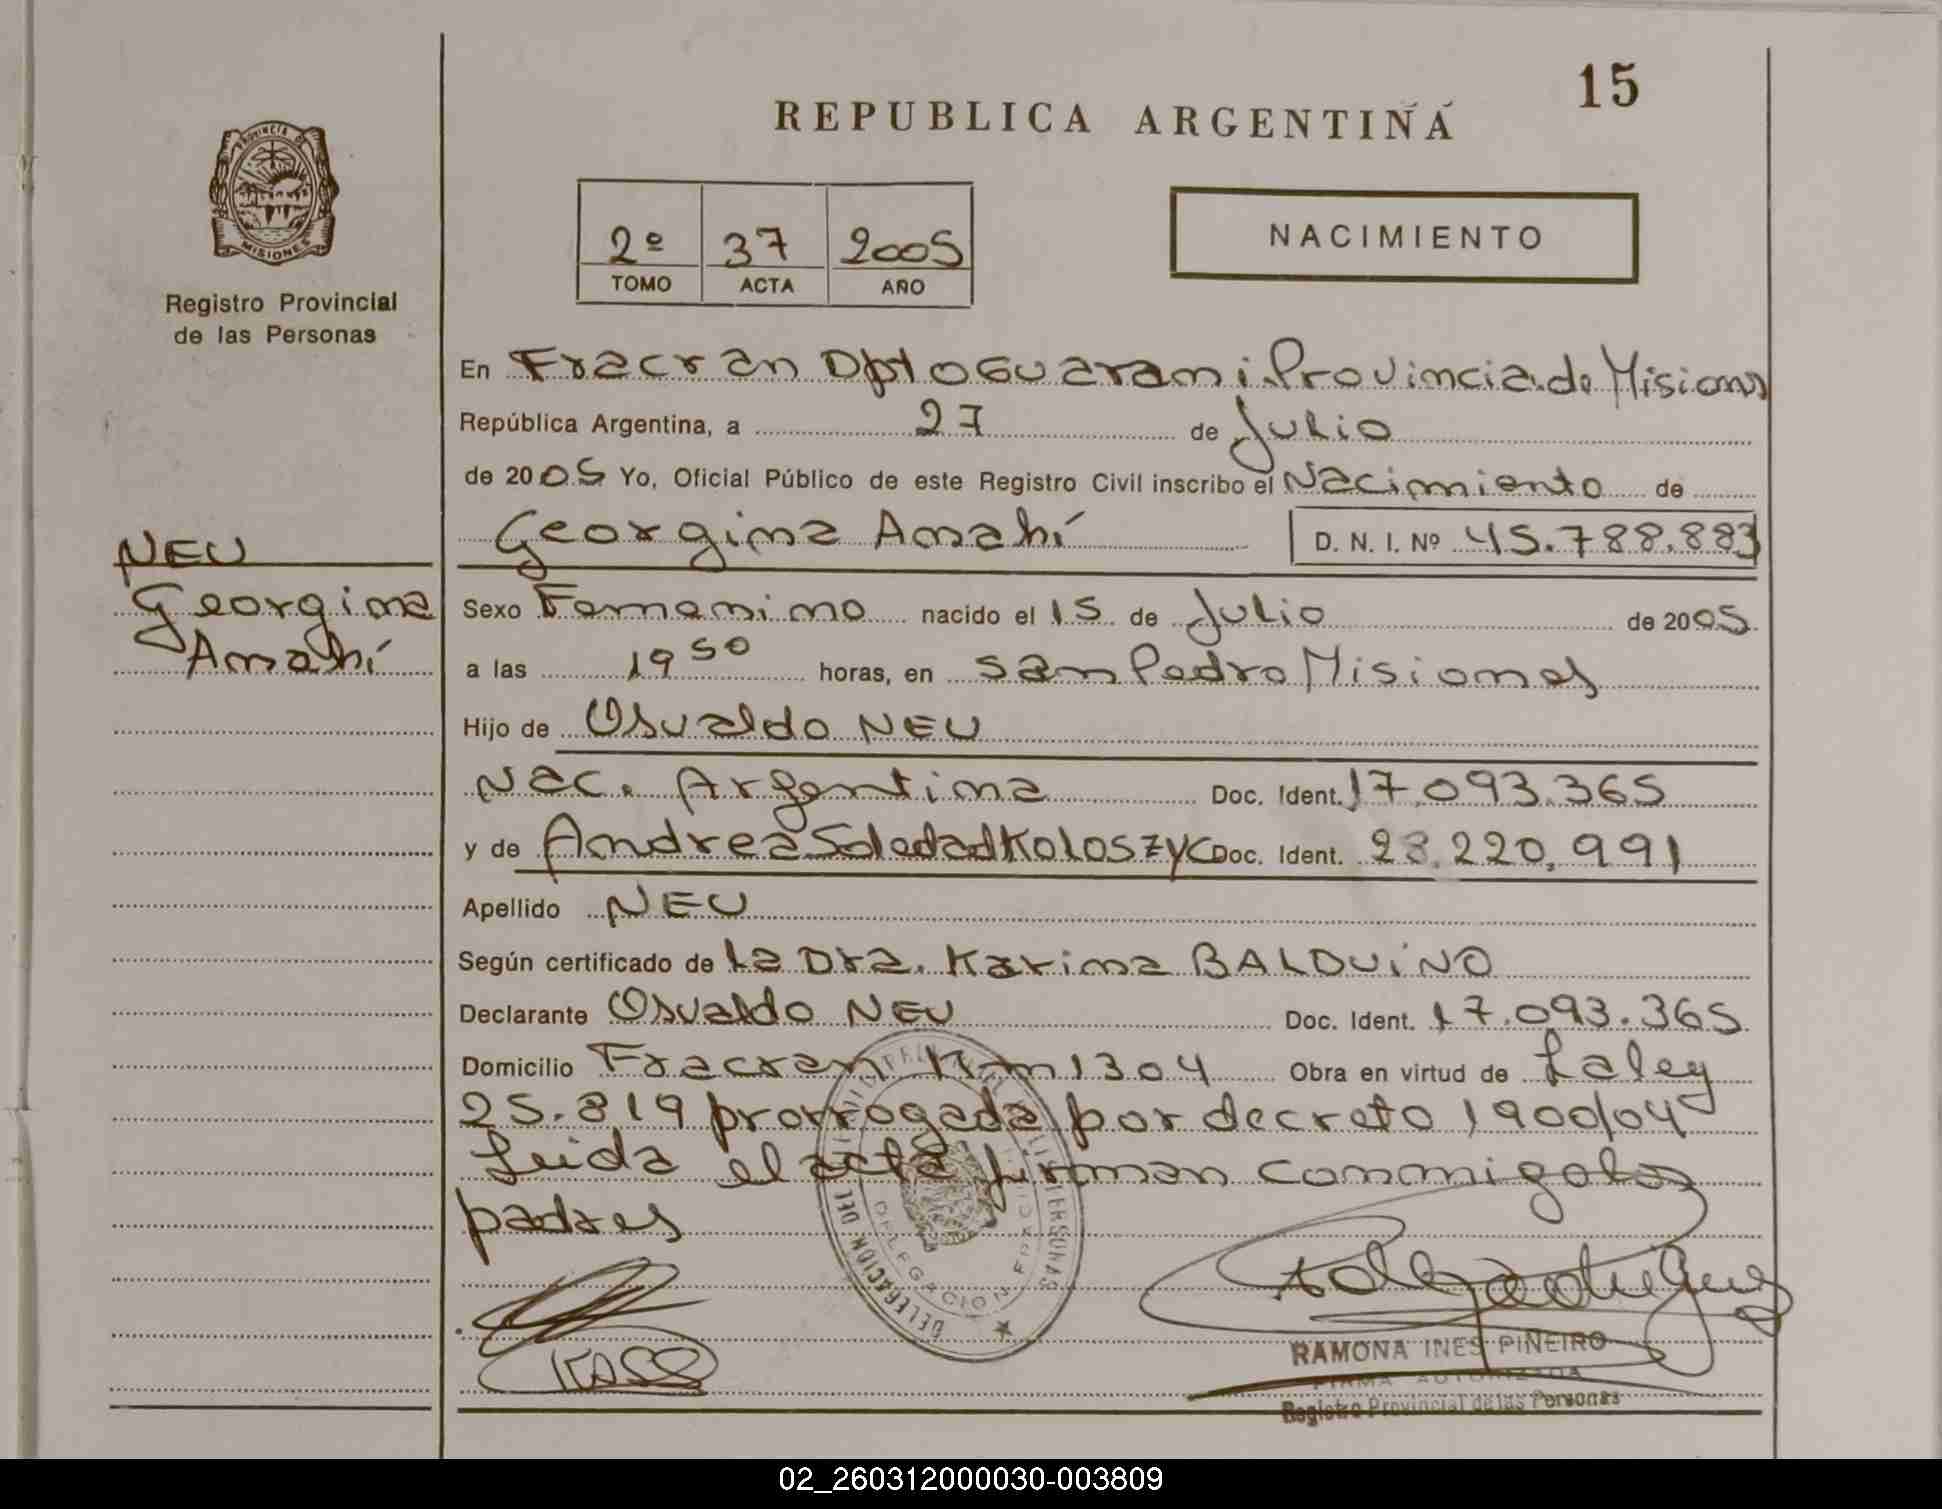 15
REPUBLICA ARGENTINA
PROVINCIA DE
MISIONES
Registro Provincial
de las Personas
2º 37 2005
TOMO ACTA AÑO
NACIMIENTO
En Fracran Dpto Guarani Provincia de Misiones
República Argentina, a 27 de Julio
de 2005 Yo, Oficial Público de este Registro Civil inscribo el Nacimiento de
Georgina Anahí D. N. I. Nº 45.788.883
NEU
Georgina
Anahí
Sexo Femenino nacido el 15 de Julio de 2005
a las 19 50 horas, en San Pedro Misiones
Hijo de Osvaldo NEU
Nac. Argentina Doc. Ident. 17.093.365
y de Andrea Soledad Koloszyc Doc. Ident. 28.220.991
Apellido NEU
Según certificado de La Dra. Karina BALDUiNO
Declarante Osvaldo NEU Doc. Ident. 17.093.365
Domicilio Fracran Km 1304 Obra en virtud de La ley
25.819 prorrogada por decreto 1900/04
Leida el acta firman conmigo los
padres
DELEGACION
RAMONA INES PIÑEIRO
FIRMA AUTORIZADA
Registro Provincial de las Personas
02_260312000030-003809